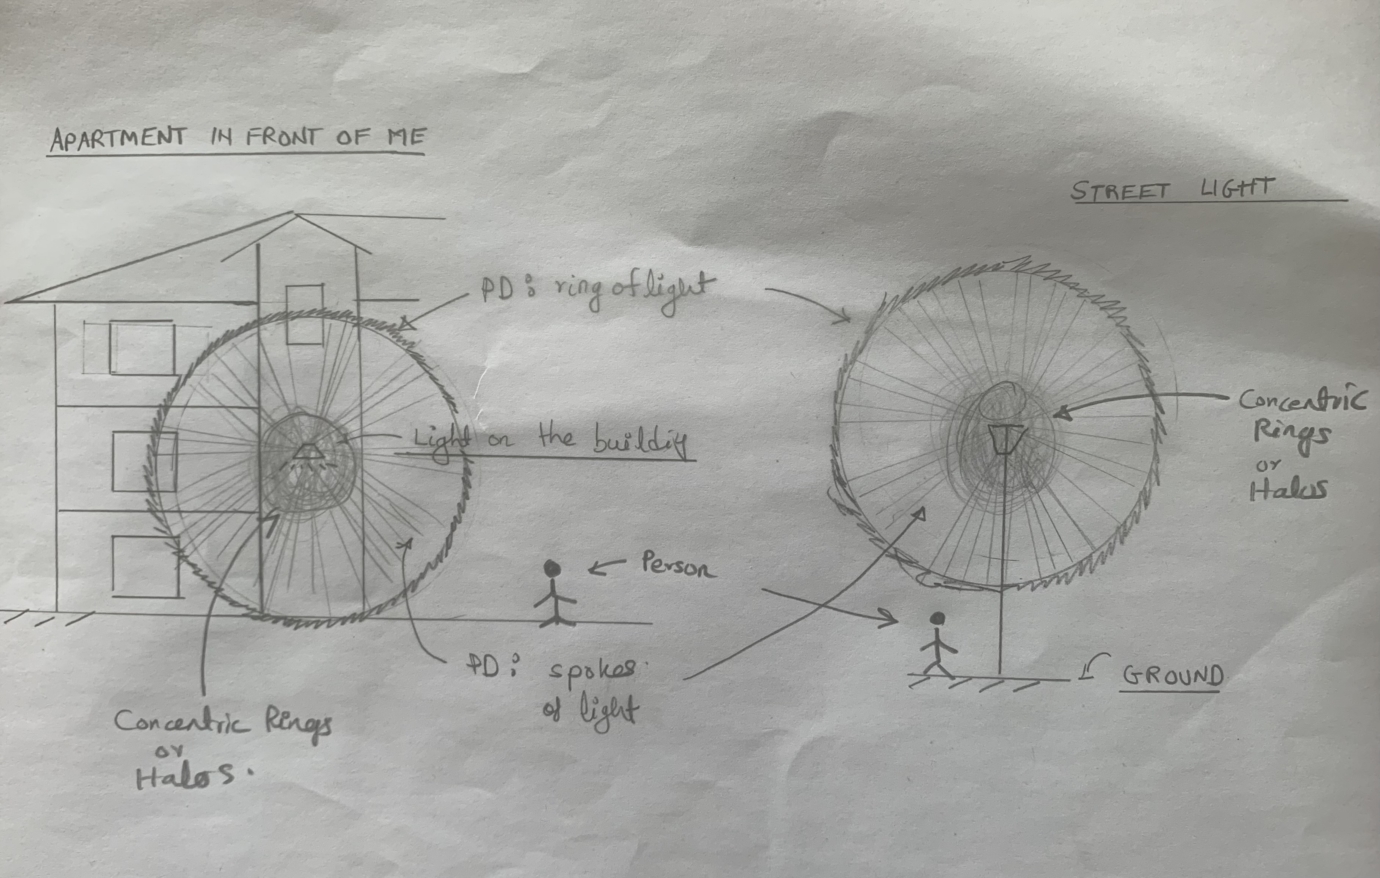 APARTMENT IN FRONT OF ME
STREET LIGHT
PD: ring of light
Concentric
Rings
or
Halos
Light on the buildig
Person
PD: spokes
of light
GROUND
Concentric Rings
or
Halos.